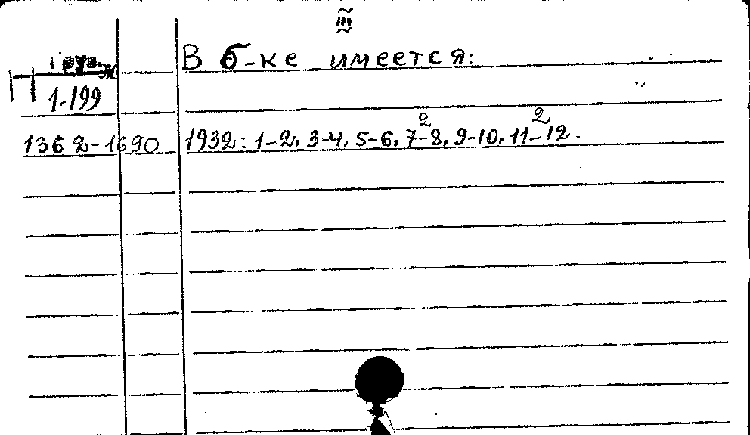 III
В б-ке имеется:
1-199
1362-1690 1932: 1-2, 3-4, 5-6, 7-8², 9-10, 11-12².